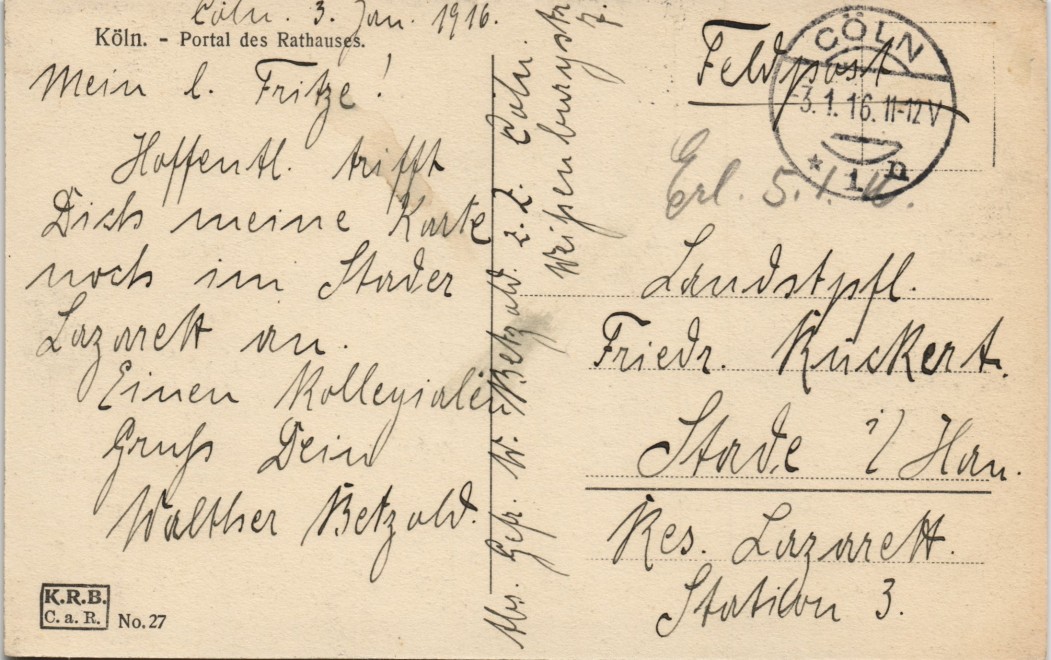 Cöln. 3. Jan. 1916.
Köln. - Portal des Rathauses.
Mein l. Fritze!
Hoffentl. trifft
Dich meine Karte
noch im Stader
Lazarett an.
Einen kollegialen
Gruß Dein
Walther Betzold.
K.R.B.
C. a. R.
No. 27
Abs. Gefr. W. Betzold. z. Z. Cöln.
Weißenburgstr
7.
Feldpost
CÖLN
3.1.16. 11-12 V
* 1 n
Erl. 5.1.16.
Landstpfl.
Friedr. Rückert.
Stade i/ Han.
Res. Lazarett.
Station 3.